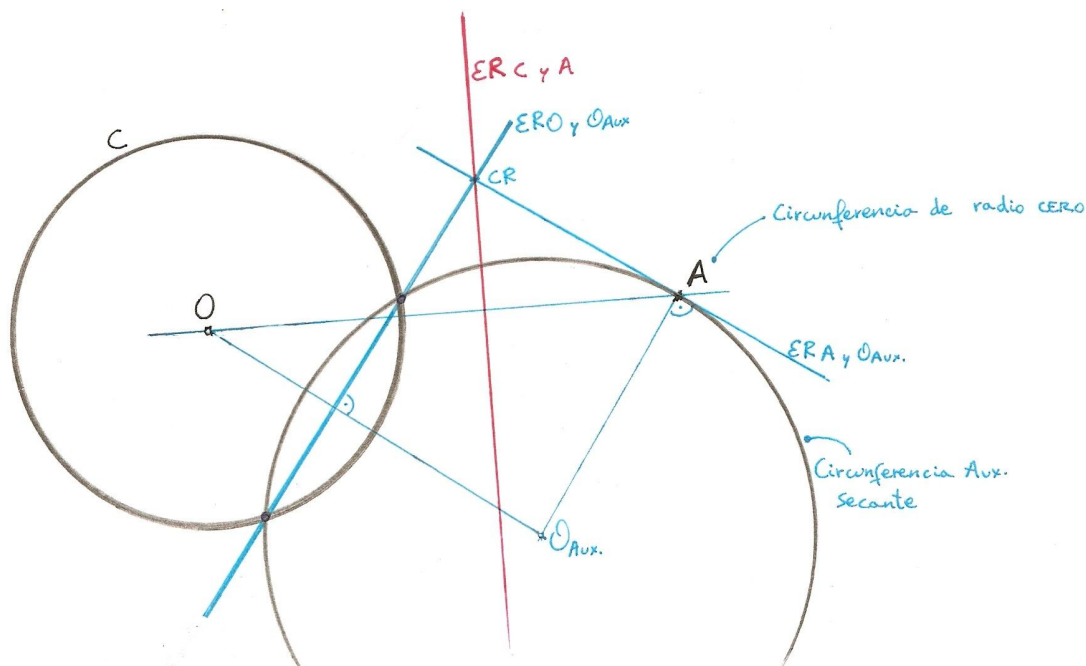 ER C y A
C
ER O y OAux
CR
Circunferencia de radio CERO
A
O
ER A y OAux.
Circunferencia Aux.
secante
OAux.